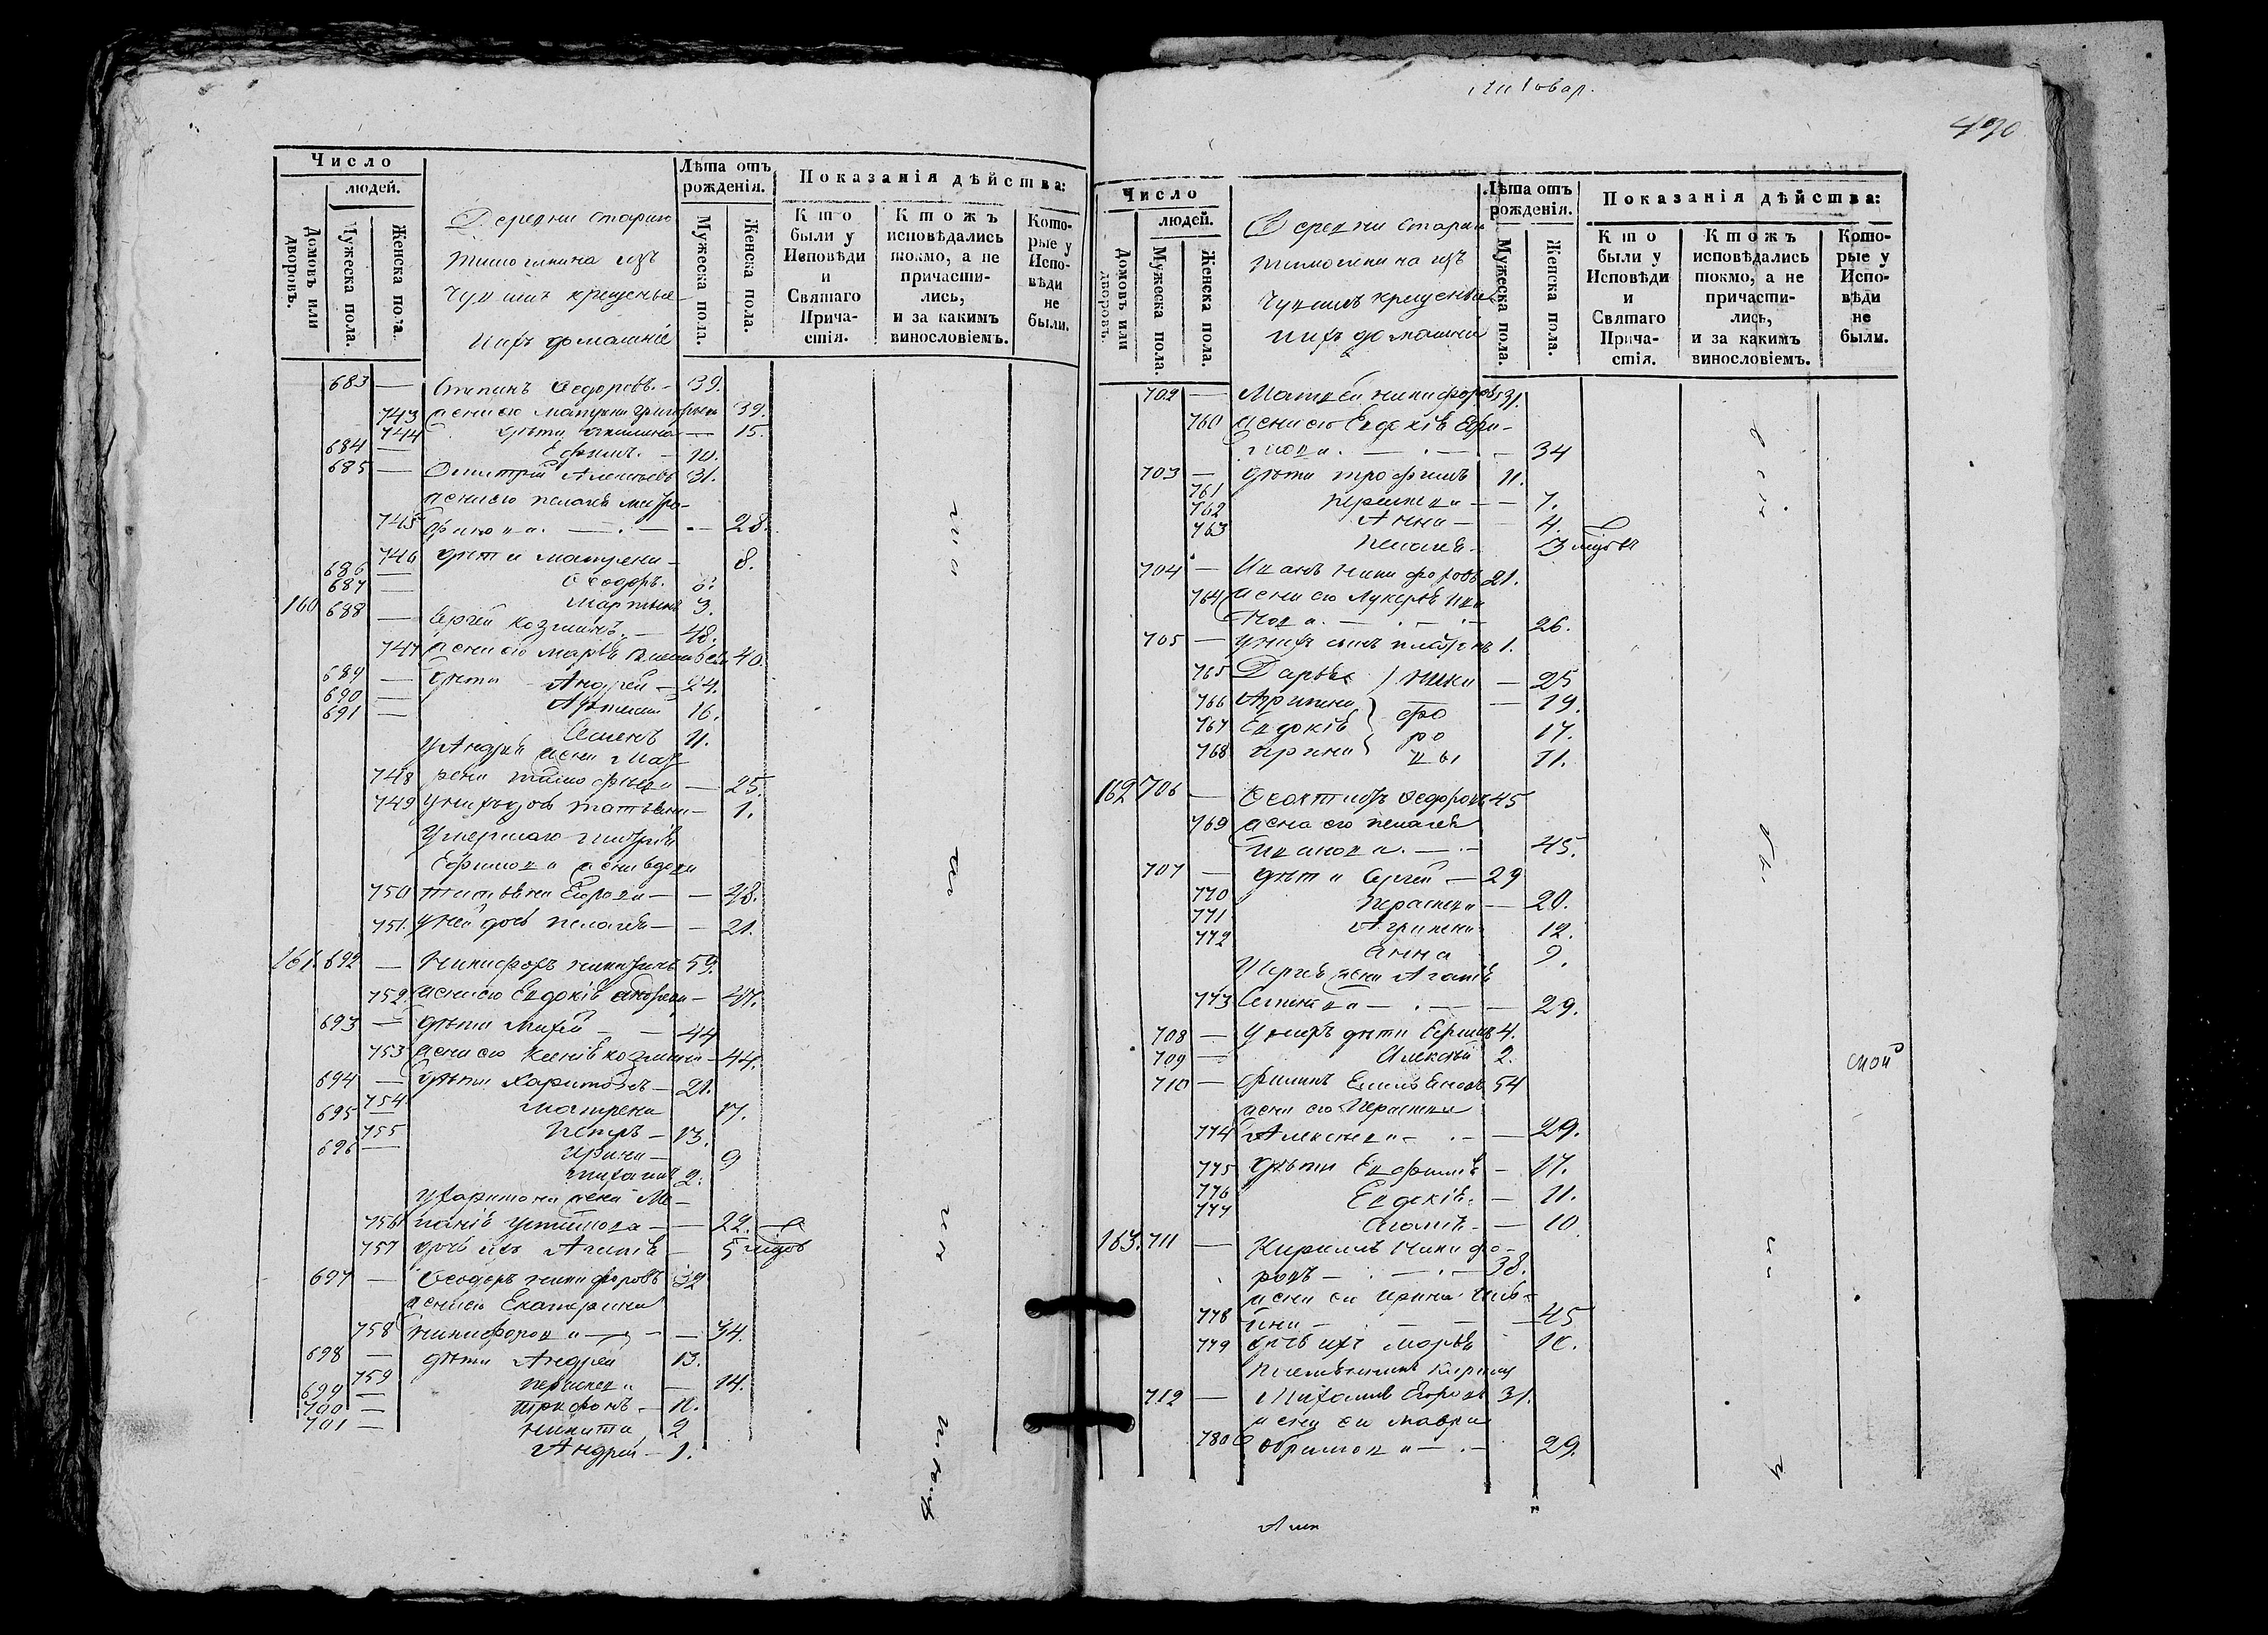 Число
людей.
Домовъ или дворовъ.
Мужеска пола.
Женска пола.
Деревни старию
тимошкина изъ
Чувашъ крещеные
ихъ домашніе
Лѣта отъ рожденія.
Мужеска пола.
Женска пола.
Показанія дѣйства:
Кто были у Исповѣди и Святаго Причастія.
Ктожъ исповѣдались токмо, а не причастились, и за какимъ винословіемъ.
Которые у Исповѣди не были.
683 — Степанъ Ѳедоровъ. — 39.
743 жена ею матрена григорьева 39.
744 дѣти акилина — 15.
684 — Ефимъ. — 10.
685 — Дмитрій Алексѣевъ 31.
жена ею пелагея митро-
745 фанова. — . — 28.
746 дѣти матрена — 8.
686 — Ѳеодоръ. 6.
687 — мартынъ 3.
160 688 — Сергей козминъ. — 48.
747 жена ею марья 40.
689 — дѣти Андрей — 24.
690 — Артемій 16.
691 — Семенъ 11.
у Андрея жена мат
748 рена тимофеева — 25.
749 у нихъ дочь татьяна — 1.
умершаго дмитрія
Ефимова жена вдова
750 татьяна Егорова — — 48.
751. у ней дочь пелагея — — 21.
161. 692 — никифоръ никитинъ 59.
752. жена ею Евдокія андреева — 47.
693 — дѣти михей — — 44
753 жена ею ксенія козмина — 44.
694 — дѣти харитонъ — 21.
754 матрена 17.
695 — петръ — 13.
755 ирина — 9
696 — михаилъ 2.
у харитона жена ме —
756 ланія устимова — — 22. —
757 дочь ихъ Агафія — 5 мцовъ
697 — Ѳеодоръ никифоровъ 32
жена ею Екатерина
758 никифорова — — 34.
698 — дѣти Андрей 13.
759 параскева — 14.
699 — трифонъ. — 11.
700 — никита 2
701 — Андрей — 1.
490
Число
людей.
Домовъ или дворовъ.
Мужеска пола.
Женска пола.
Деревни старию
тимошкина изъ
Чувашъ крещеные
ихъ домашніе
Лѣта отъ рожденія.
Мужеска пола.
Женска пола.
Показанія дѣйства:
Кто были у Исповѣди и Святаго Причастія.
Ктожъ исповѣдались токмо, а не причастились, и за какимъ винословіемъ.
Которые у Исповѣди не были.
702 — Матвей никифоровъ 31.
760 жена ею Евдокія
— . — 34
703 — дѣти трофимъ 11.
761 параскева — — 7.
762 Анна — — 4.
763 пелагея — 3 мцовъ
704 — Иванъ никифоровъ 21.
764 жена ею лукерья ива
нова. — . — . — 26.
705 — у нихъ сынъ платонъ 1.
765 Дарья ники — 25
766 Агрипена фо — 19.
767 Евдокія ро 17.
768 ирина вы 11.
162 706 — Ѳеоктистъ Ѳедоровъ 45
769 жена ею пелагея
иванова. — . — 45.
707 — дѣти Сергей — 29
770 параскева — 20.
771 Агрипена 12.
772 анна 9.
у Сергея жена Агафія
773 Семенова — . — — 29.
708 — у нихъ дѣти Ефимъ 4.
709 — Алексѣй 2.
710 — филипъ Емельяновъ 54
жена ею параскева
774 Алексеева — . — — 29.
775 дѣти Евфимія — 17.
776 Евдокія. — 11.
777 Агафія. — 10
163. 711 — Кирилъ никифо —
ровъ — . — . — 38.
778 жена ею ирина
— 45
779 дочь ихъ марья 10.
племянникъ кирила
712 — михаилъ Егоровъ 31.
жена ею мавра
780 Ефимова — . — 29.